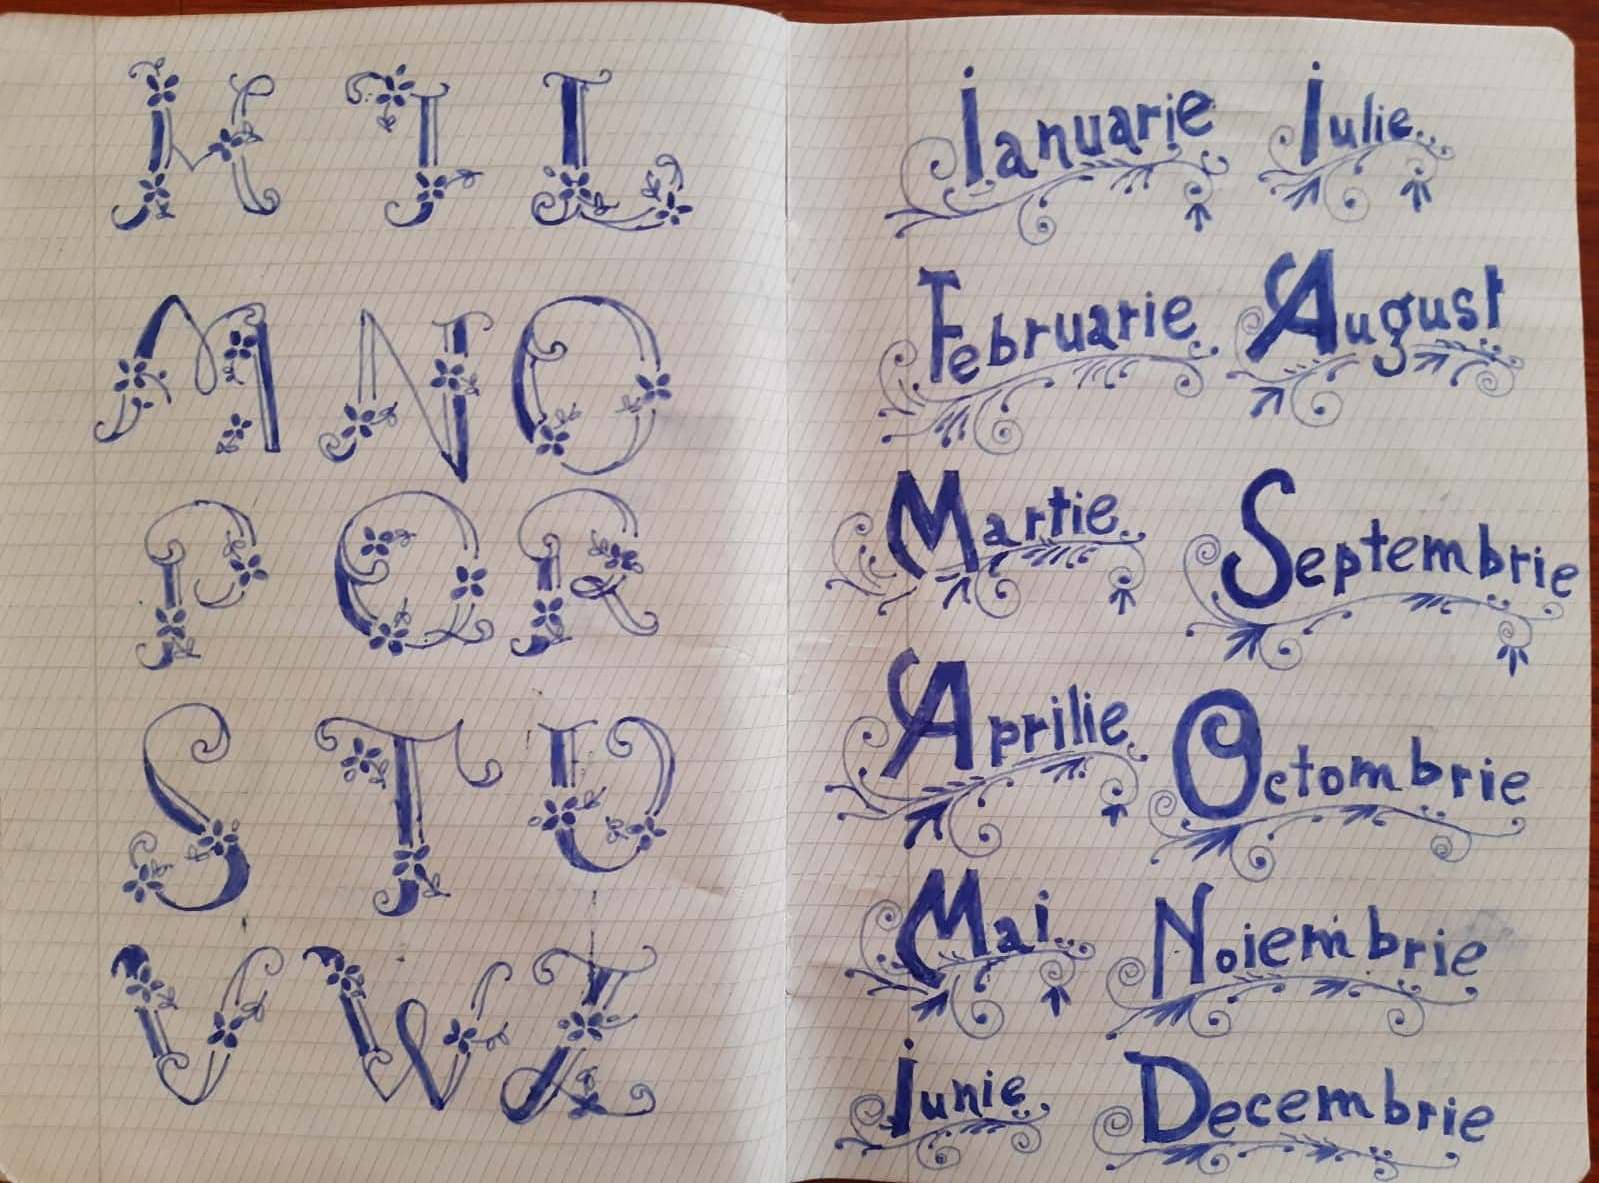 H I L
M N O
P Q R
S T U
V W Z
Ianuarie Iulie
Februarie August
Martie Septembrie
Aprilie Octombrie
Mai Noiembrie
Iunie Decembrie